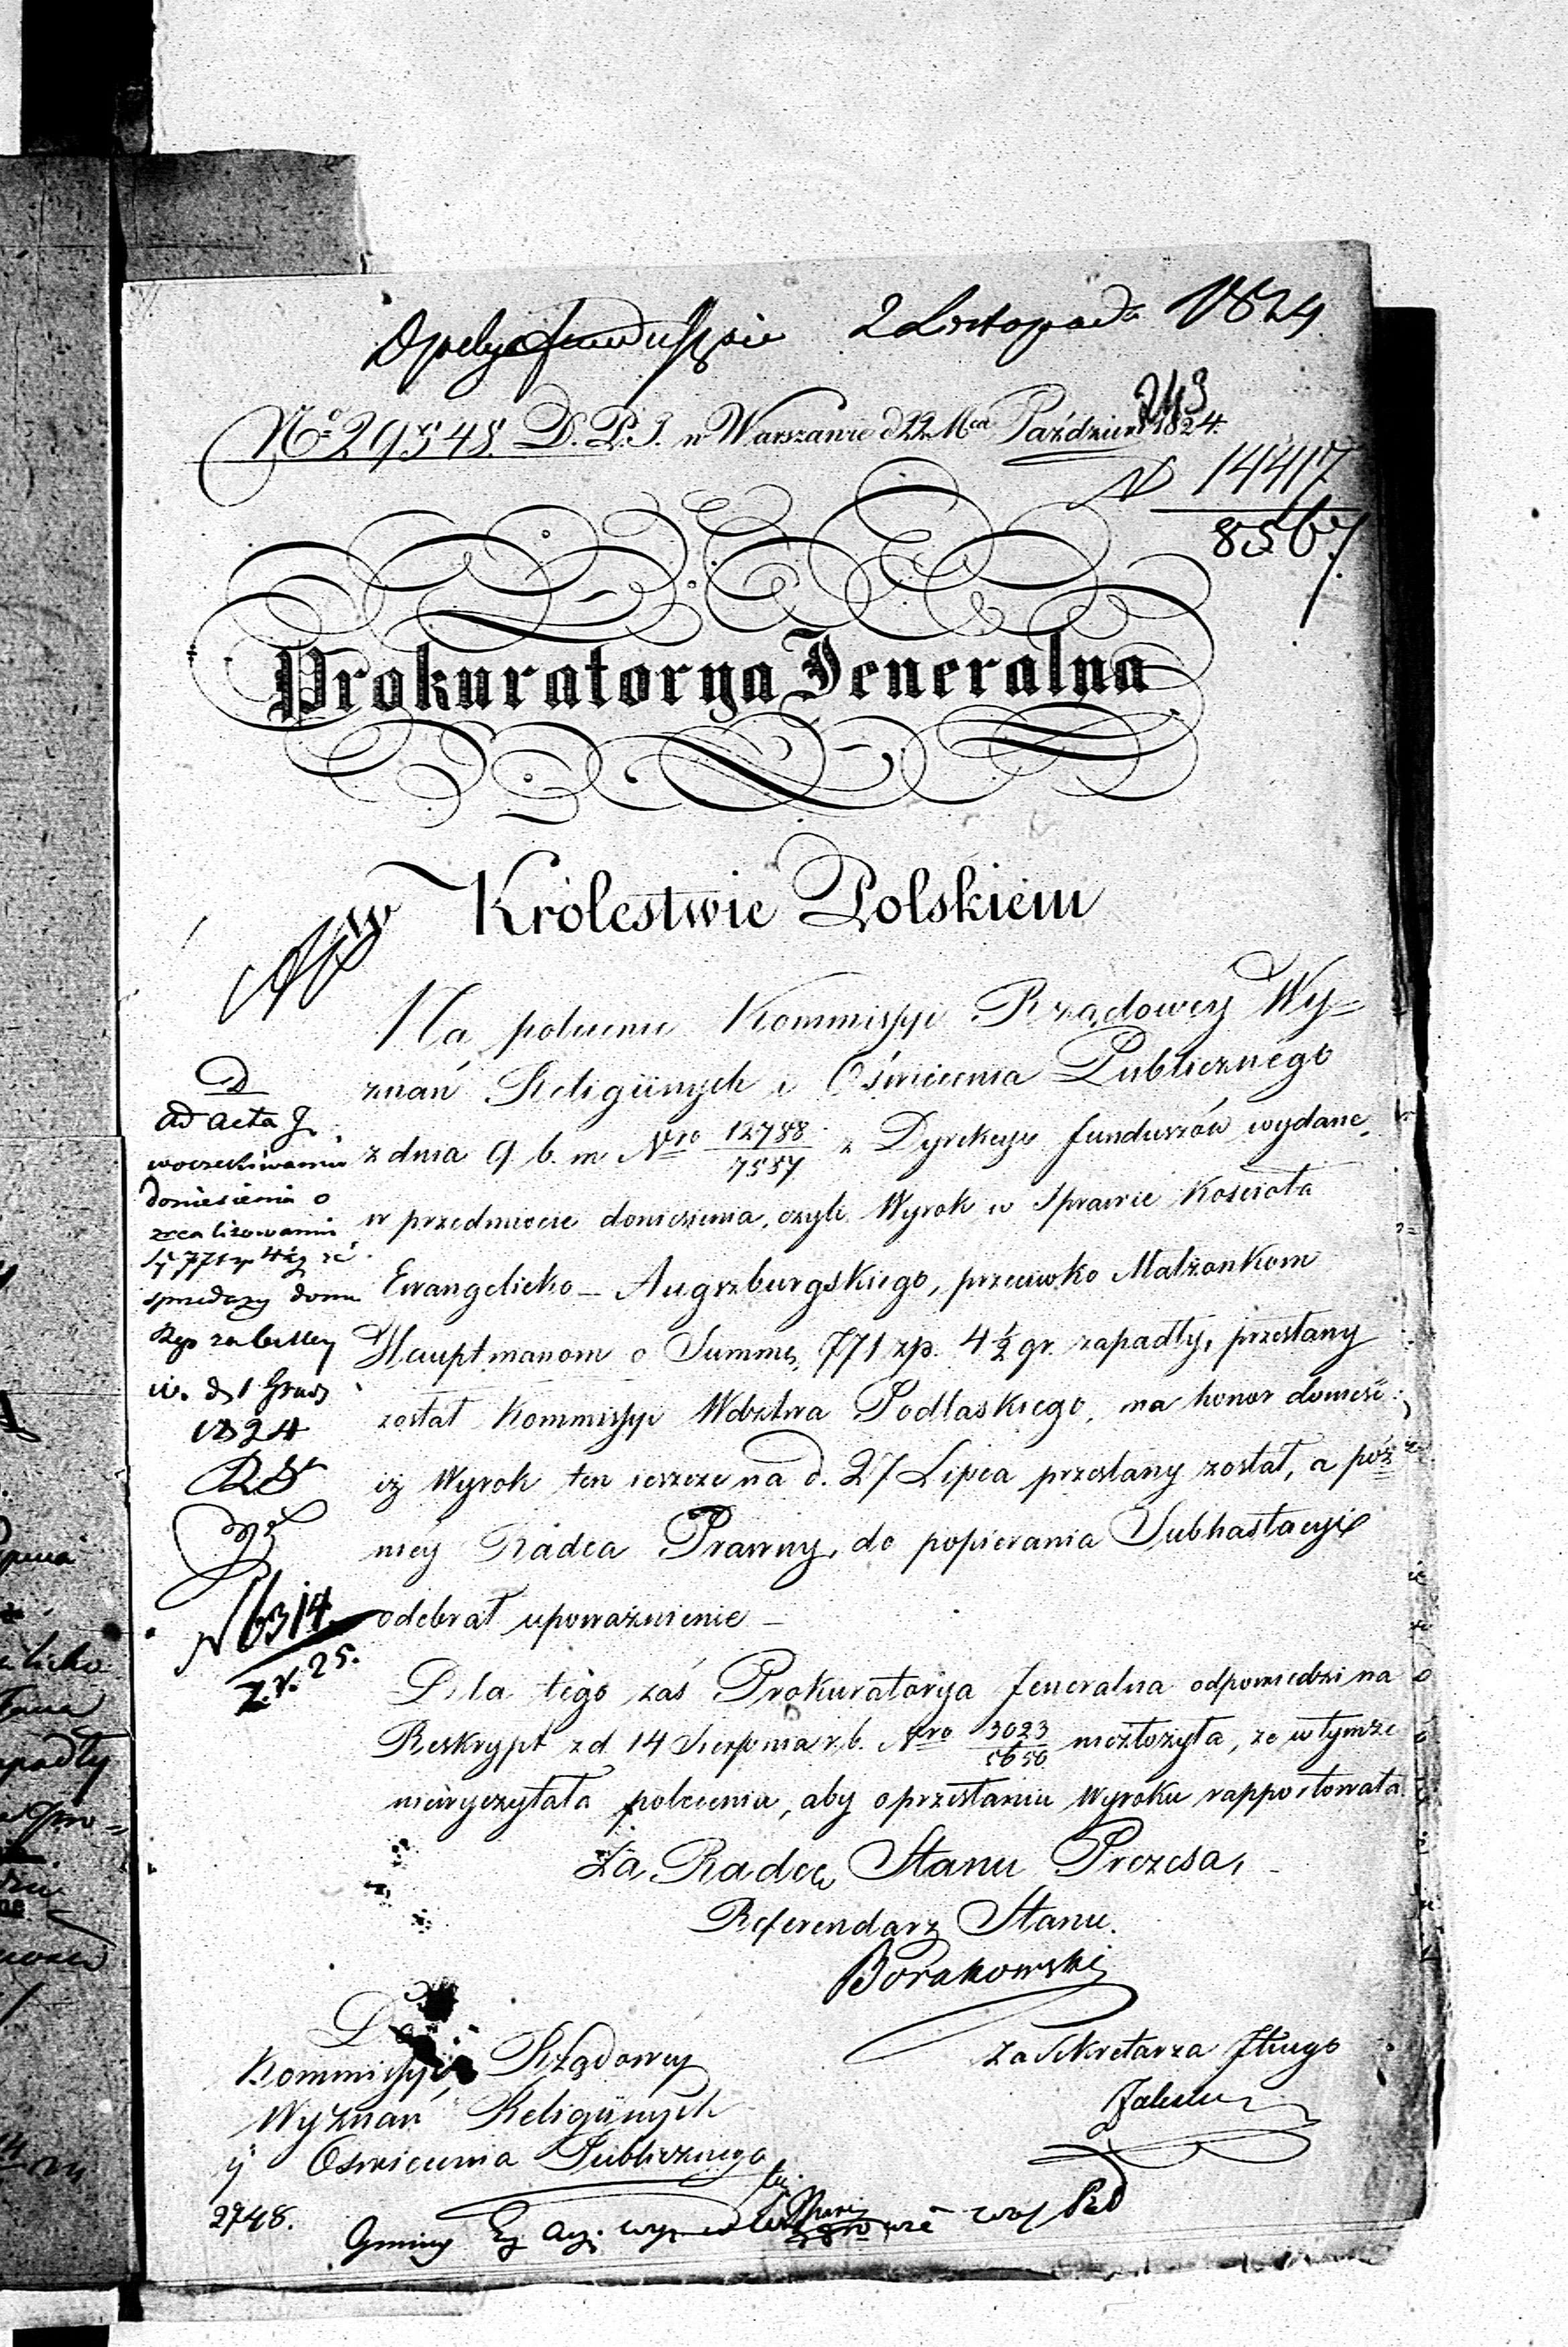 2 Listopada 1824
243
No 29548. D.P.J. w Warszawie d 22 Mca Paździer 1824.
N 14417
8567
Prokuratorya Jeneralna
w Królestwie Polskiem
Na polecenie Kommissyi Rządowey Wy=
znań Religiinych i Oświecenia Publicznego
z dnia 9 b. m Nro 12788/7557 z Dyrekcyi funduszów wydane,
w przedmiocie doniesienia, czyli Wyrok w Sprawie Kościoła
Ewangelicko - Augszburgskiego, przeciwko Małżonkom
Hauptmanom o Summę 771 zp. 4½ gr. zapadły, przesłany
został Kommissyi Wdztwa Podlaskiego, ma honor donieść
iż Wyrok ten ieszcze na d. 27 Lipca przesłany został, a póź
niéy Radca Prawny, do popierania Subhastacyi
odebrał upoważnienie -
Dla tego zaś Prokuratorya Jeneralna odpowiedzi na
Reskrypt z d 14 Sierpnia r. b. Nro 3023/5650 niezłożyła, że w tymże
niewyczytała polecenia, aby o przesłaniu Wyroku rapportowała
Za Radcę Stanu Prezesa,
Referendarz Stanu.
Borakowski
Za Sekretarza Jlnego
Do
Kommissyi Rządowey
Wyznań Religiinych
y Oświecenia Publicznego
2748.
D
ad acta J.
w oczekiwaniu
doniesienia o
zrealizowaniu
771 zp 4½ g ze
sprzedazy domu
w. d 1 Grud
1824
N 6314
Z. r. 25.
Gminy